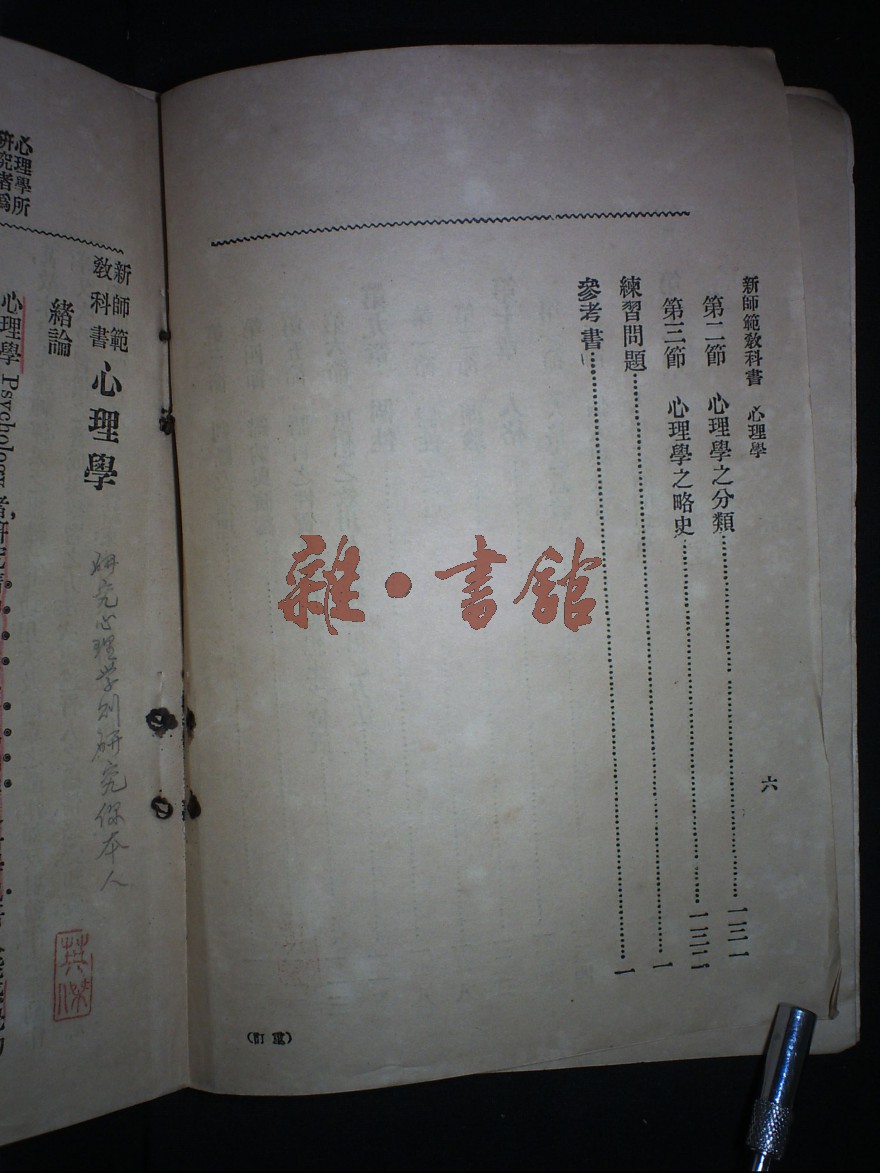 新師範教科書 心理學
六
第二節 心理學之分類 一三一
第三節 心理學之略史 一三二
練習問題 一
參考書 一
(訂重)
雜·書館
心理學所
研究者爲
新師範
教科書
心理學
研究心理学則研究你本人
緒論
心理學 Psychology 者,